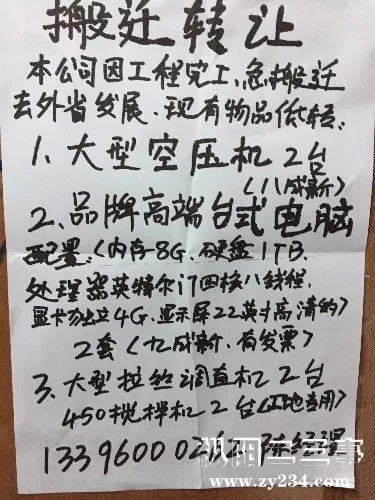 搬迁转让
本公司因工程完工、急搬迁
去外省发展、现有物品低转:
1、大型空压机2台
(八成新)
2、品牌高端台式电脑
配置:(内存-8G、硬盘1TB、
处理器英特尔i7四核八线程、
显卡为独立4G、显示屏22英寸高清的)
2套(九成新、有发票)
3、大型拉丝调直机2台
450搅拌机2台(工地专用)
陈经理
枞阳二三事
www.zy234.com